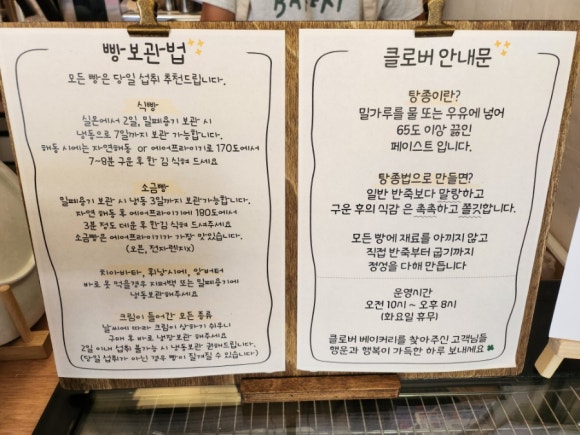 BAKERY
빵 보관법
모든 빵은 당일 섭취 추천드립니다.
식빵
실온에서 2일, 밀폐용기 보관 시
냉동으로 7일까지 보관 가능합니다.
해동 시에는 자연해동 or 에어프라이기로 170도에서
7~8분 구운 후 한 김 식혀 드세요
소금빵
밀폐용기 보관 시 냉동 3일까지 보관가능합니다.
자연 해동 후 에어프라이기에 180도에서
3분 정도 데운 후 한김 식혀 드셔주세요
소금빵은 에어프라이기가 가장 맛있습니다.
(오븐, 전자렌지x)
치아바타, 휘낭시에, 앙버터
바로 못 먹을경우 지퍼백 또는 밀폐용기에
냉동보관해주세요
크림이 들어간 모든 종류
날씨에 따라 크림이 상하기 쉬우니
구매 후 바로 냉장보관 해주세요
2일 이내 섭취 불가능 시 냉동보관 권해드립니다.
(당일 섭취가 아닌 경우 빵이 질겨질 수 있습니다)
클로버 안내문
탕종이란?
밀가루를 물 또는 우유에 넣어
65도 이상 끓인
페이스트 입니다.
탕종법으로 만들면?
일반 반죽보다 말랑하고
구운 후의 식감 은 촉촉하고 쫄깃합니다.
모든 빵에 재료를 아끼지 않고
직접 반죽부터 굽기까지
정성을 다해 만듭니다
운영시간
오전 10시 ~ 오후 8시
(화요일 휴무)
클로버 베이커리를 찾아주신 고객님들
행운과 행복이 가득한 하루 보내세요 🍀